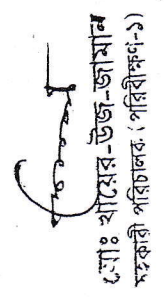 মোঃ খায়ের-উজ-জামান
সহকারী পরিচালক (পরিবীক্ষণ-১)